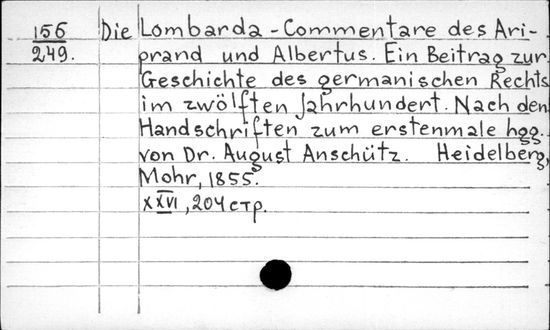 156 Die Lombarda-Commentare des Ari-
249. prand und Albertus. Ein Beitrag zur
Geschichte des germanischen Rechts
im zwölften Jahrhundert. Nach den
Handschriften zum erstenmale hgg.
von Dr. August Anschütz. Heidelberg,
Mohr, 1855.
XXVI, 204 стр.